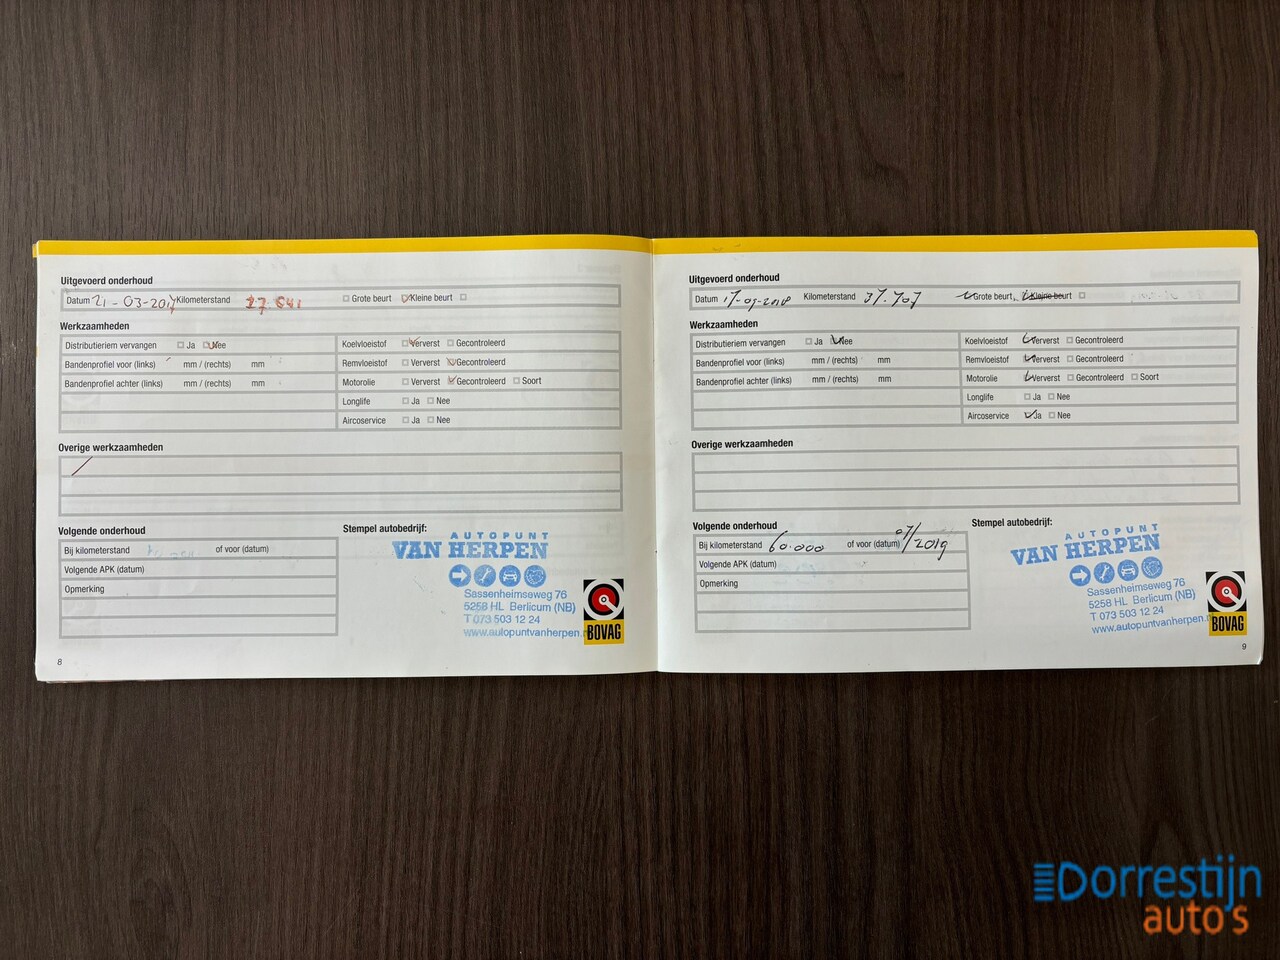 Uitgevoerd onderhoud
Datum 21-03-2017 Kilometerstand 27.641 Grote beurt Kleine beurt
Werkzaamheden
Distributieriem vervangen Ja Nee
Bandenprofiel voor (links) mm / (rechts) mm
Bandenprofiel achter (links) mm / (rechts) mm
Koelvloeistof Ververst Gecontroleerd
Remvloeistof Ververst Gecontroleerd
Motorolie Ververst Gecontroleerd Soort
Longlife Ja Nee
Aircoservice Ja Nee
Overige werkzaamheden
Volgende onderhoud
Bij kilometerstand of voor (datum)
Volgende APK (datum)
Opmerking
Stempel autobedrijf:
AUTOPUNT
VAN HERPEN
Sassenheimseweg 76
5258 HL Berlicum (NB)
T 073 503 12 24
www.autopuntvanherpen.
BOVAG
8
Uitgevoerd onderhoud
Datum 17-09-2018 Kilometerstand 37.707 Grote beurt Kleine beurt
Werkzaamheden
Distributieriem vervangen Ja Nee
Bandenprofiel voor (links) mm / (rechts) mm
Bandenprofiel achter (links) mm / (rechts) mm
Koelvloeistof Ververst Gecontroleerd
Remvloeistof Ververst Gecontroleerd
Motorolie Ververst Gecontroleerd Soort
Longlife Ja Nee
Aircoservice Ja Nee
Overige werkzaamheden
Volgende onderhoud
Bij kilometerstand 60.000 of voor (datum) 07/2019
Volgende APK (datum)
Opmerking
Stempel autobedrijf:
AUTOPUNT
VAN HERPEN
Sassenheimseweg 76
5258 HL Berlicum (NB)
T 073 503 12 24
www.autopuntvanherpen.n
BOVAG
9
Dorrestijn
auto's